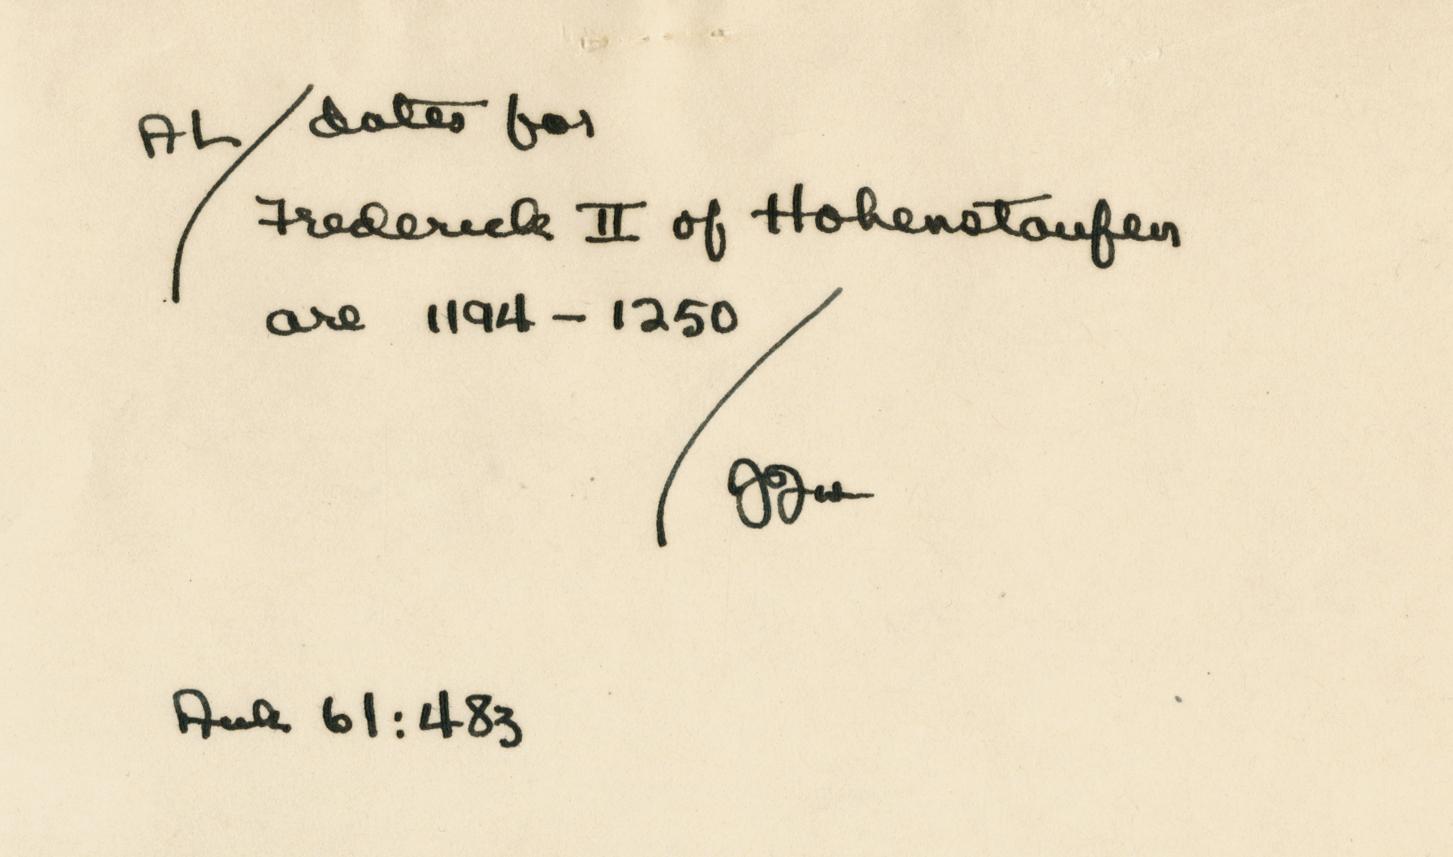 AL / dates for
Frederick II of Hohenstaufen
are 1194 - 1250
Auk 61:483